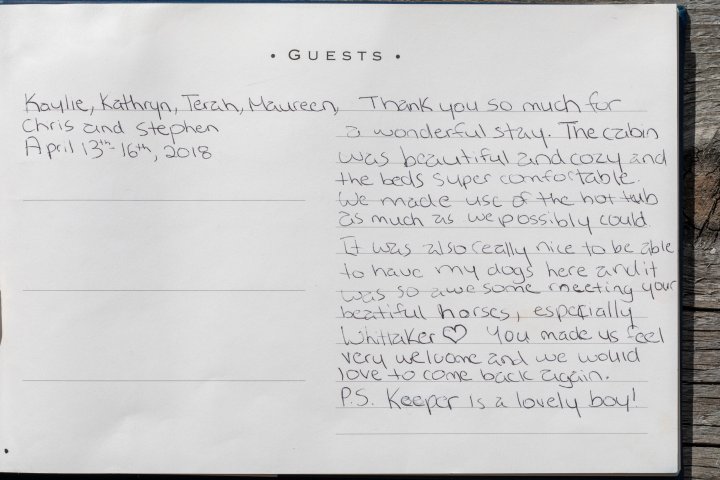 • GUESTS •
Kaylie, Kathryn, Terah, Maureen,
Chris and Stephen
April 13th-16th, 2018
Thank you so much for
a wonderful stay. The cabin
was beautiful and cozy and
the beds super comfortable.
We made use of the hot tub
as much as we possibly could.
It was also really nice to be able
to have my dogs here and it
was so awesome meeting your
beatiful horses, especially
Whittaker ♡ You made us feel
very welcome and we would
love to come back again.
P.S. Keeper is a lovely boy!